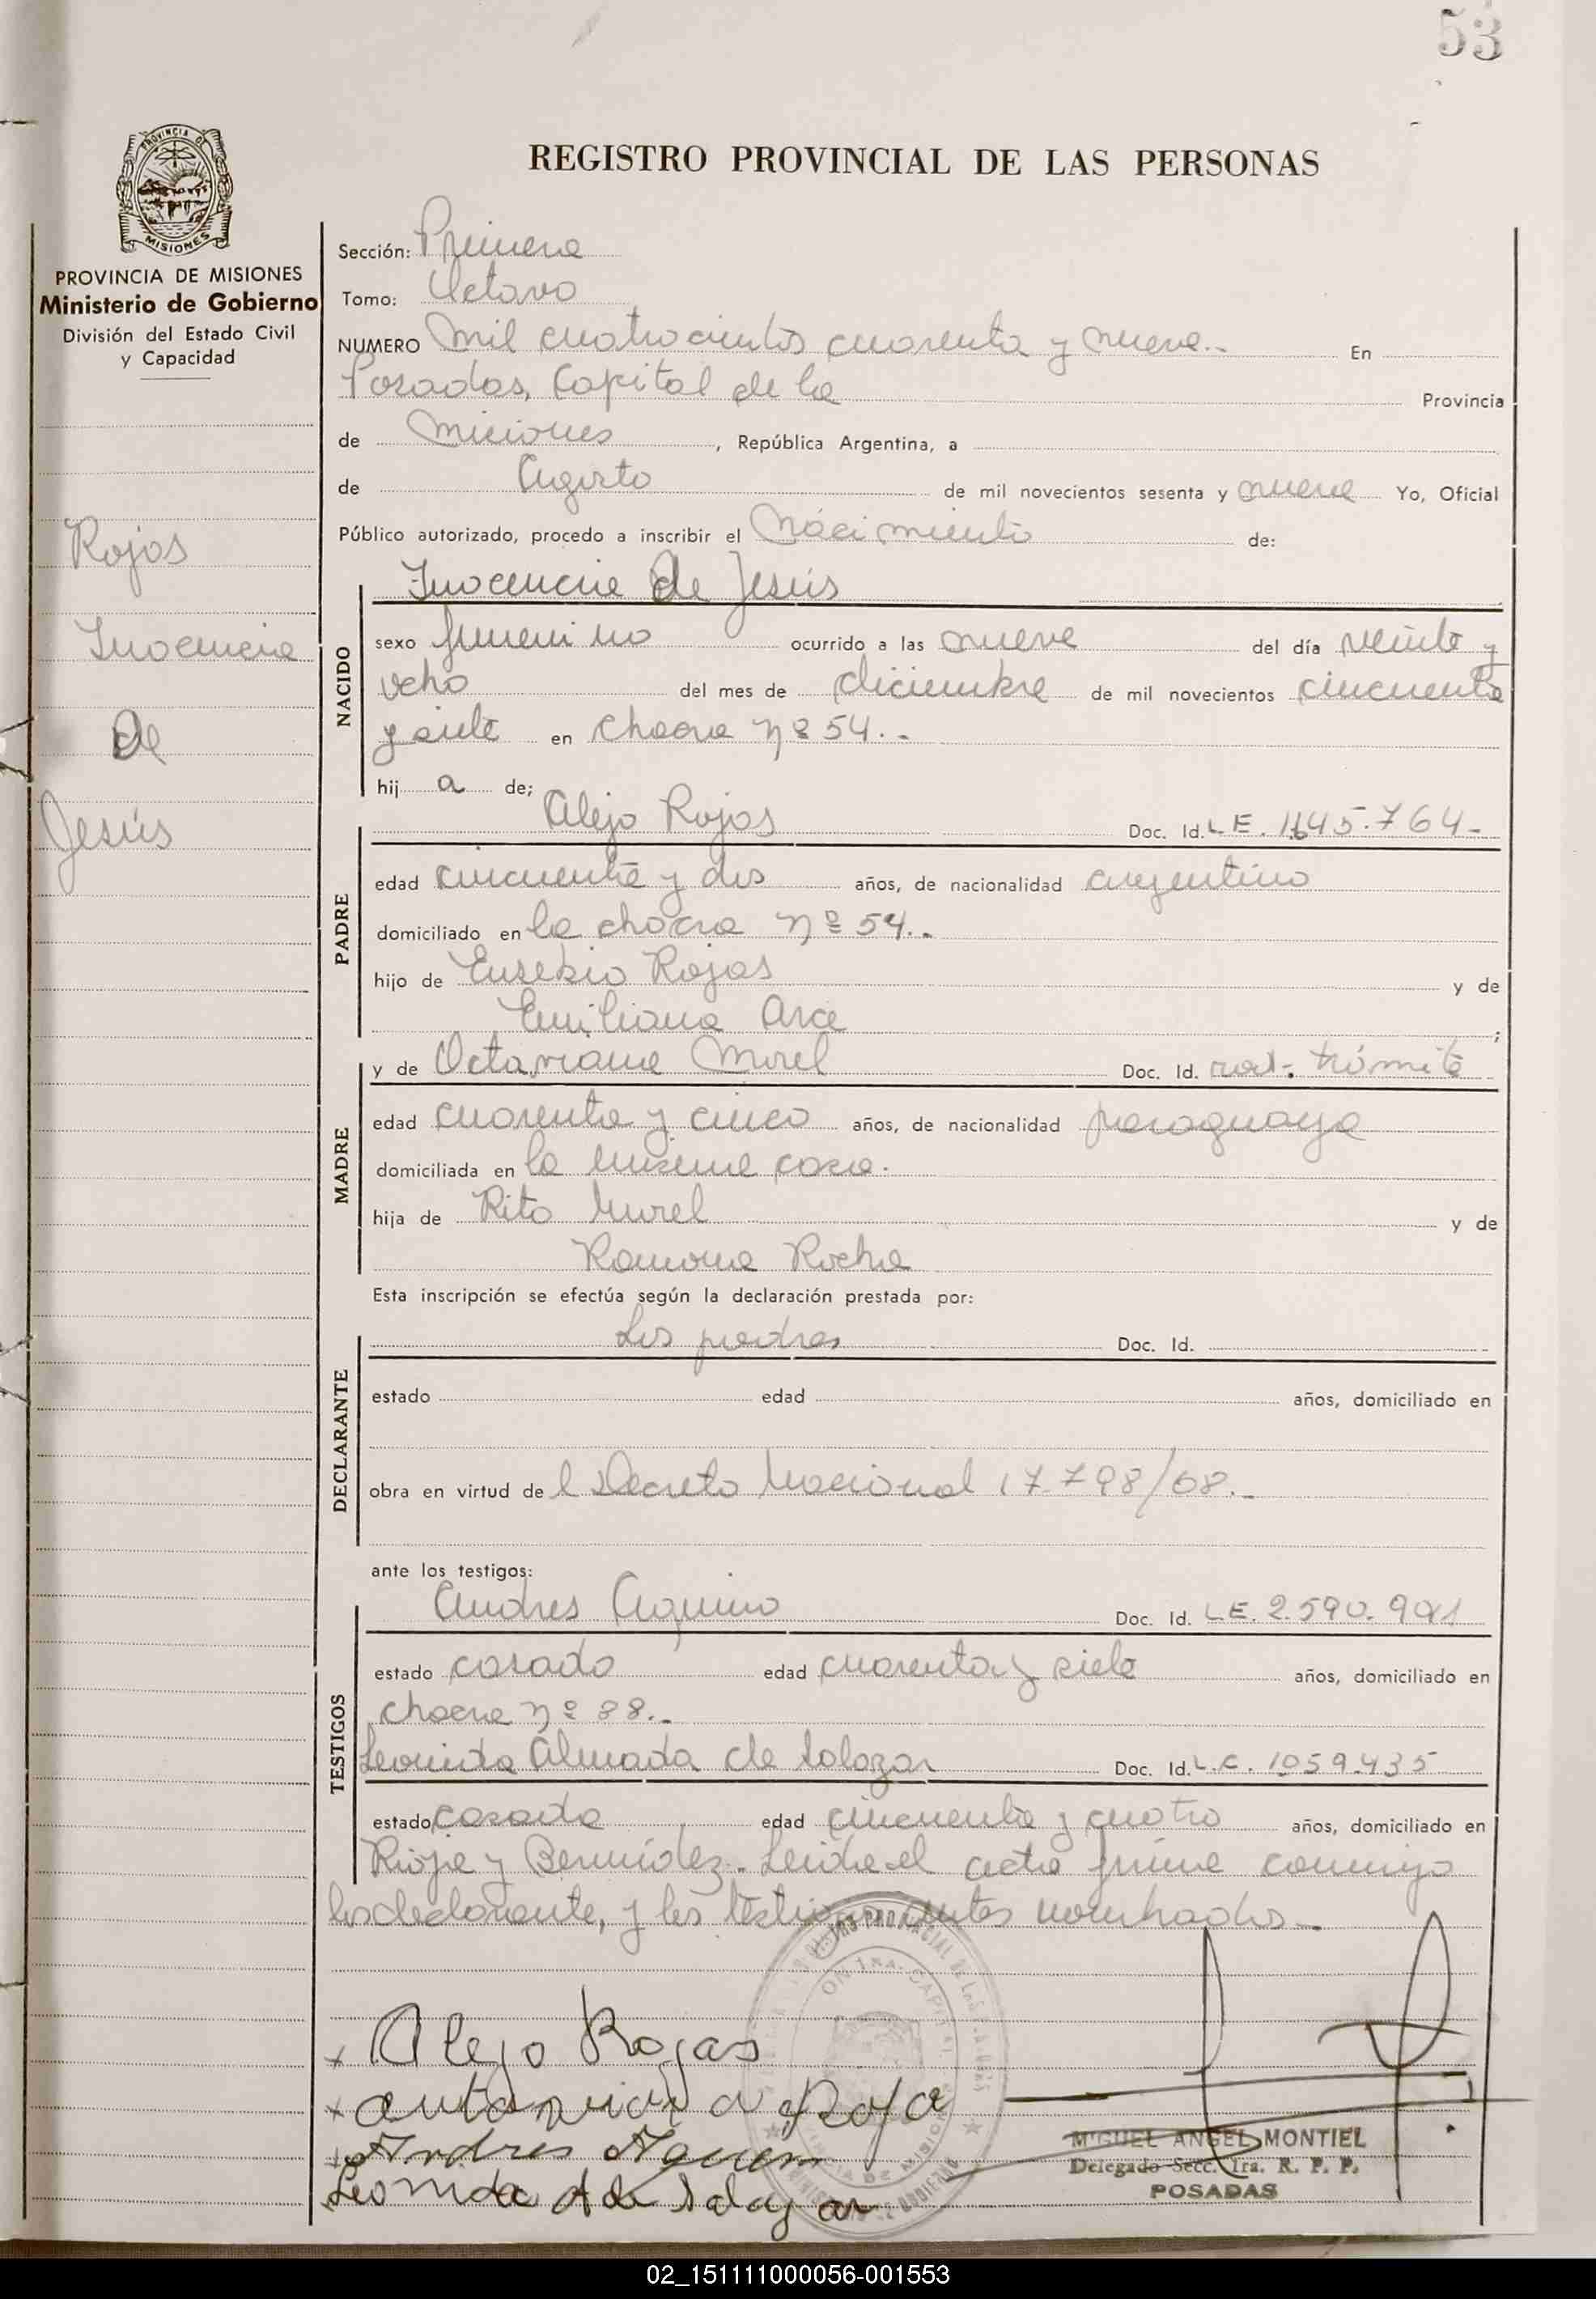 53
PROVINCIA DE
MISIONES
PROVINCIA DE MISIONES
Ministerio de Gobierno
División del Estado Civil
y Capacidad
Rojas
Inocencia
de
Jesús
REGISTRO PROVINCIAL DE LAS PERSONAS
Sección: Primera
Tomo: Octavo
NUMERO mil cuatrocientos cuarenta y nueve.- En
Posadas, Capital de la Provincia
de Misiones, República Argentina, a
de Agosto de mil novecientos sesenta y nueve Yo, Oficial
Público autorizado, procedo a inscribir el Nacimiento de:
Inocencia de Jesús
NACIDO
sexo femenino ocurrido a las nueve del día veinte y
ocho del mes de diciembre de mil novecientos cincuenta
y siete en Chacra Nº 54.-
hij a de;
Alejo Rojas Doc. Id. L E. 1645.764-
PADRE
edad cincuenta y dos años, de nacionalidad argentino
domiciliado en la chacra Nº 54.-
hijo de Eusebio Rojas y de
Emiliana Arce;
MADRE
y de Octaviana Morel Doc. Id. trámite
edad cuarenta y cinco años, de nacionalidad paraguaya
domiciliada en la misma casa.
hija de Rito Morel y de
Ramona Rocha
Esta inscripción se efectúa según la declaración prestada por:
Los padres Doc. Id.
DECLARANTE
estado edad años, domiciliado en
obra en virtud de l Decreto Nacional 17.798/68.-
ante los testigos:
TESTIGOS
Andres Aquino Doc. Id. L E. 2.590.901
estado casado edad cuarenta y siete años, domiciliado en
chacra Nº 38.-
Leonida Almada de Salazar Doc. Id. L.C. 1059.435
estado casada edad cincuenta y cuatro años, domiciliado en
Rioja y Bermúdez. Leída el acta firma conmigo
los declarante, y los testigos antes nombrados.-
Alejo Rojas
Roja
Andres
Leonida A de Salazar
MIGUEL ANGEL MONTIEL
Delegado Secc. 1ra. R. P. P.
POSADAS
02_151111000056-001553